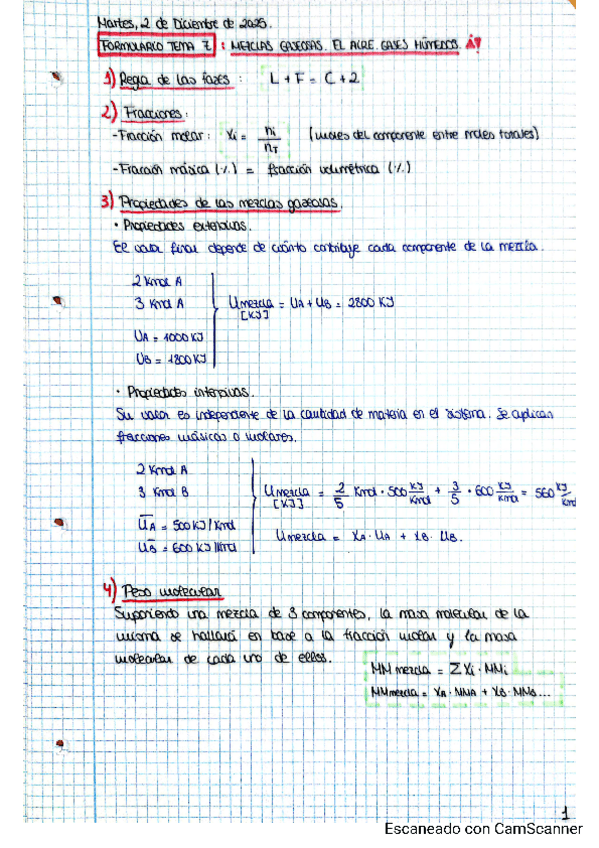 Martes, 2 de Diciembre de 2025.
FORMULARIO TEMA 7: MEZCLAS GASEOSAS. EL AIRE. GASES HÚMEDOS.
1) Regla de las fases: L + F = C + 2
2) Fracciones:
- Fracción molar: Xi = ni / nT (moles del componente entre moles totales)
- Fracción másica (%) = fracción volumétrica (%)
3) Propiedades de las mezclas gaseosas.
• Propiedades extensivas.
El valor final depende de cuánto contribuye cada componente de la mezcla.
2 Kmol A
3 Kmol A
Umezcla = UA + UB = 2800 KJ
[KJ]
UA = 1000 KJ
UB = 1800 KJ
• Propiedades intensivas.
Su valor es independiente de la cantidad de materia en el sistema. Se aplican
fracciones másicas o molares.
2 Kmol A
3 Kmol B
Umezcla = 2/5 Kmol · 500 KJ/Kmol + 3/5 · 600 KJ/Kmol = 560 KJ/Kmol
[KJ]
UA = 500 KJ/Kmol
UB = 600 KJ/Kmol
Umezcla = XA · UA + XB · UB.
4) Peso molecular
Suponiendo una mezcla de 3 componentes, la masa molecular de la
misma se hallará en base a la fracción molar y la masa
molecular de cada uno de ellos.
MM mezcla = Σ Xi · MMi
MM mezcla = XA · MMA + XB · MMB...
1
Escaneado con CamScanner